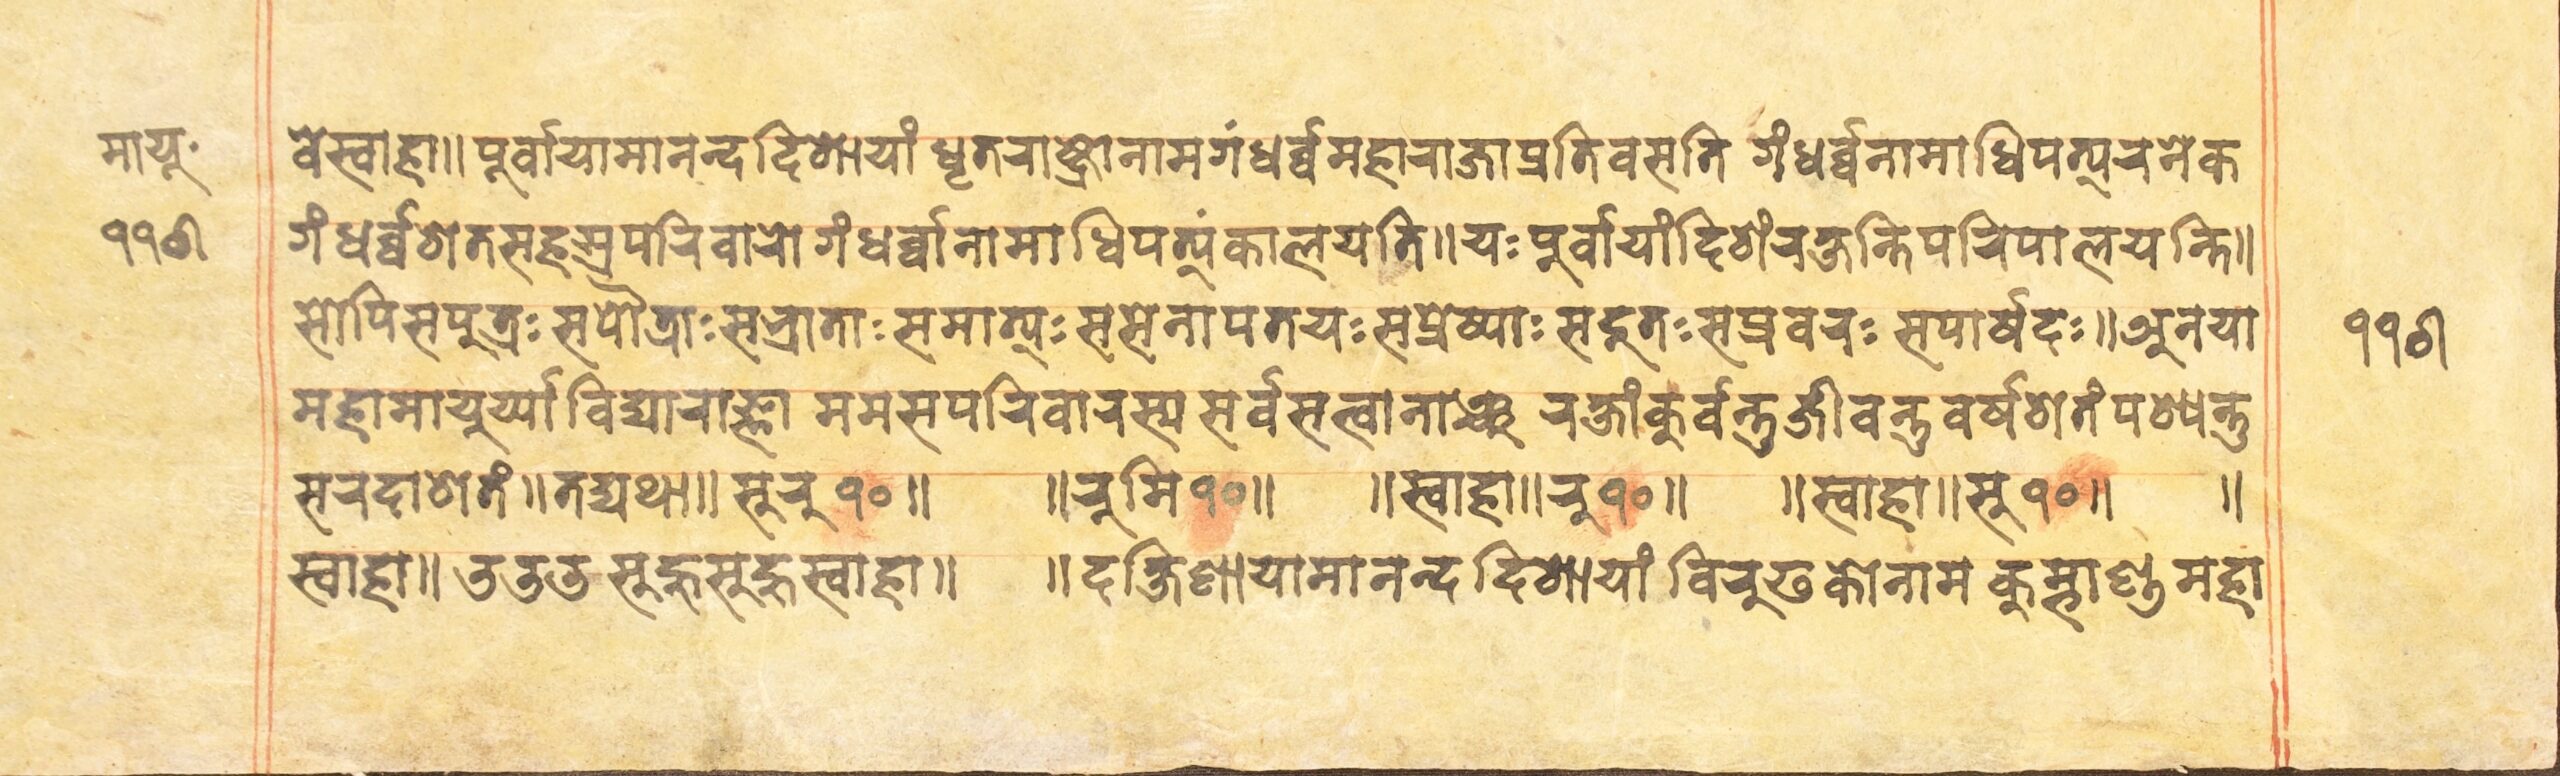 मायूः
११७
वेस्वाहा॥ पूर्वायामानन्ददिशायां धृतराष्ट्रोनामगंधर्व्वमहाराजाप्रतिवसति गंधर्व्वनामाधिपत्यरनेक
गंधर्व्वशतसहस्रपरिवारो गंधर्व्वानामाधिपत्यंकालयति॥ यः पूर्वायांदिशंरक्षन्तिपरिपालयन्ति॥
सोपिसपुत्रः सपौत्राः सभ्राताः समात्यः ससेनापतयः सप्रेष्याः सदुतः सप्रवरः सपार्षदः॥ अनया
११७
महामायुर्य्या विद्याराज्ञा ममसपरिवारस्य सर्वसत्वानाञ्च रक्षांकुर्वन्तु जीवन्तु वर्षशतंपश्यन्तु
सरदाशतं॥ तद्यथा॥ सुरु १०॥ ॥ रुमि १०॥ ॥ स्वाहा॥ रु १०॥ ॥ स्वाहा॥ सु १०॥ ॥
स्वाहा॥ तततत सुह्रुसुह्रुस्वाहा॥ ॥ दक्षिणायामानन्ददिशायां विरुढकोनाम कुम्भाण्डमहा